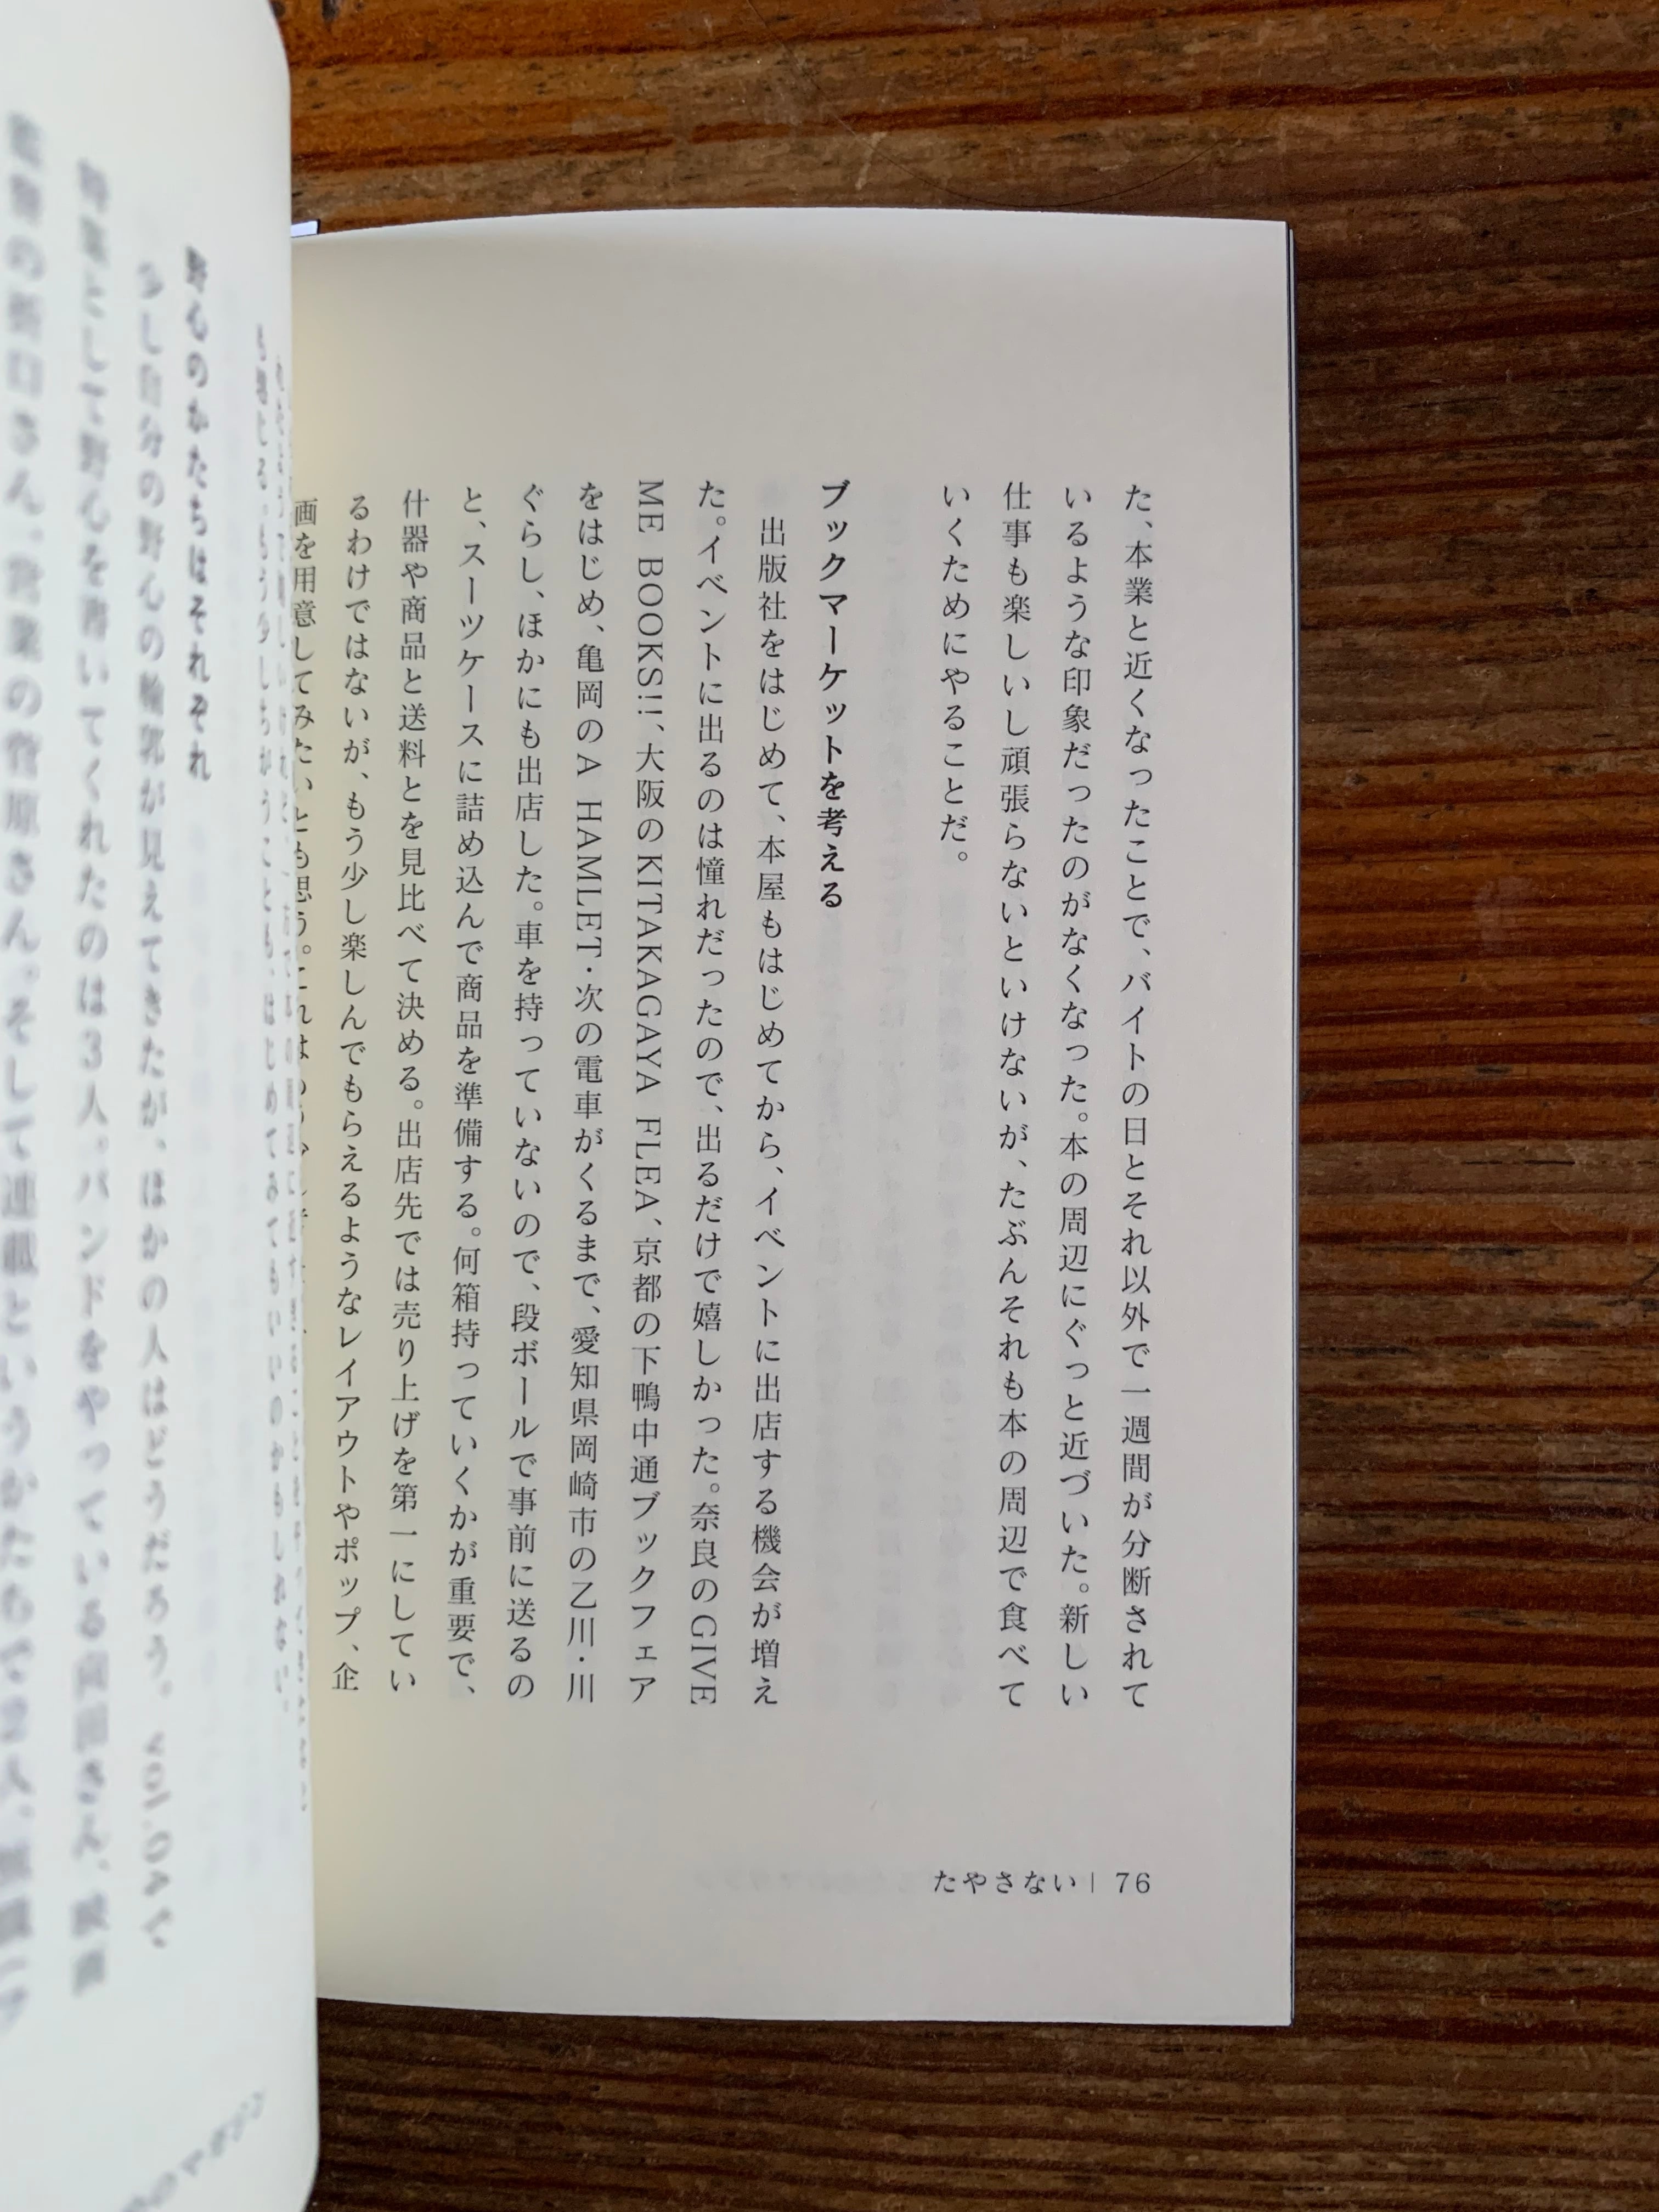 た、本業と近くなったことで、バイトの日とそれ以外で一週間が分断されて
いるような印象だったのがなくなった。本の周辺にぐっと近づいた。新しい
仕事も楽しいし頑張らないといけないが、たぶんそれも本の周辺で食べて
いくためにやることだ。
ブックマーケットを考える
出版社をはじめて、本屋もはじめてから、イベントに出店する機会が増え
た。イベントに出るのは憧れだったので、出るだけで嬉しかった。奈良のGIVE
ME BOOKS!!、大阪のKITAKAGAYA FLEA、京都の下鴨中通ブックフェア
をはじめ、亀岡のA HAMLET・次の電車がくるまで、愛知県岡崎市の乙川・川
ぐらし、ほかにも出店した。車を持っていないので、段ボールで事前に送るの
と、スーツケースに詰め込んで商品を準備する。何箱持っていくかが重要で、
什器や商品と送料とを見比べて決める。出店先では売り上げを第一にしてい
るわけではないが、もう少し楽しんでもらえるようなレイアウトやポップ、企
画を用意してみたいとも思う。これは
たやさない | 76
も感じる。もう少しちがうことも、はじめてみてもいいのかもしれない。
野心のかたちはそれぞれ
少し自分の野心の輪郭が見えてきたが、ほかの人はどうだろう。vol.04で
特集として野心を書いてくれたのは3人。バンドをやっている
さん、営業の菅原さん。そして連載というかたちで2人、